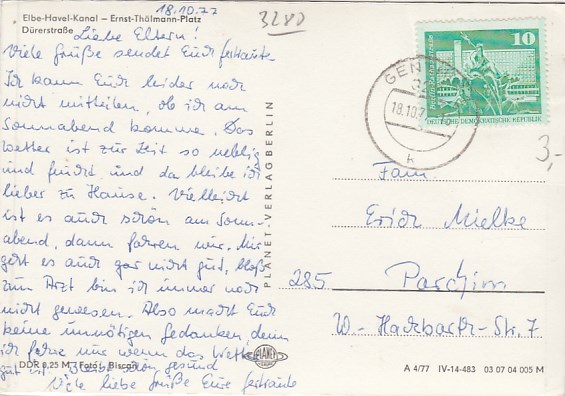 Elbe-Havel-Kanal – Ernst-Thälmann-Platz
Dürerstraße
18.10.77
3280
Liebe Eltern!
Viele Grüße sendet Euch
Ich kann Euch leider noch
nicht mitteilen, ob ich am
Sonnabend komme. Das
Wetter ist zur Zeit so neblig
und feucht und da bleibe ich
lieber zu Hause. Vielleicht
ist es auch schön am Sonn-
abend, dann fahren wir. Mir
geht es auch gar nicht gut, bloß
zum Arzt bin ich immer noch
nicht gewesen. Also macht Euch
keine unnötigen Gedanken, denn
ich fahre nur wenn das Wetter
gut ist. Bleibt schön gesund
Viele liebe Grüße Eure
DDR 0,25 M Foto: Biscan
PLANET-VERLAG BERLIN
PLANET
10
DEUTSCHE DEMOKRATISCHE REPUBLIK
GEN
18.10.7
h
3,-
Fam.
Erich Mielke
285 Parchim
W.-Hackbarth-Str. 7
A 4/77 IV-14-483 03 07 04 005 M